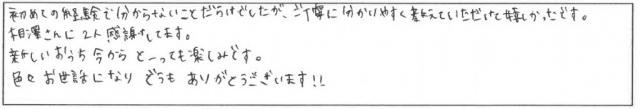 初めての経験で分からないことだらけでしたが、ご丁寧に分かりやすく教えていただけて嬉しかったです。
相澤さんに2人感謝してます。
新しいおうち今からとーっても楽しみです。
色々お世話になりどうもありがとうございます!!